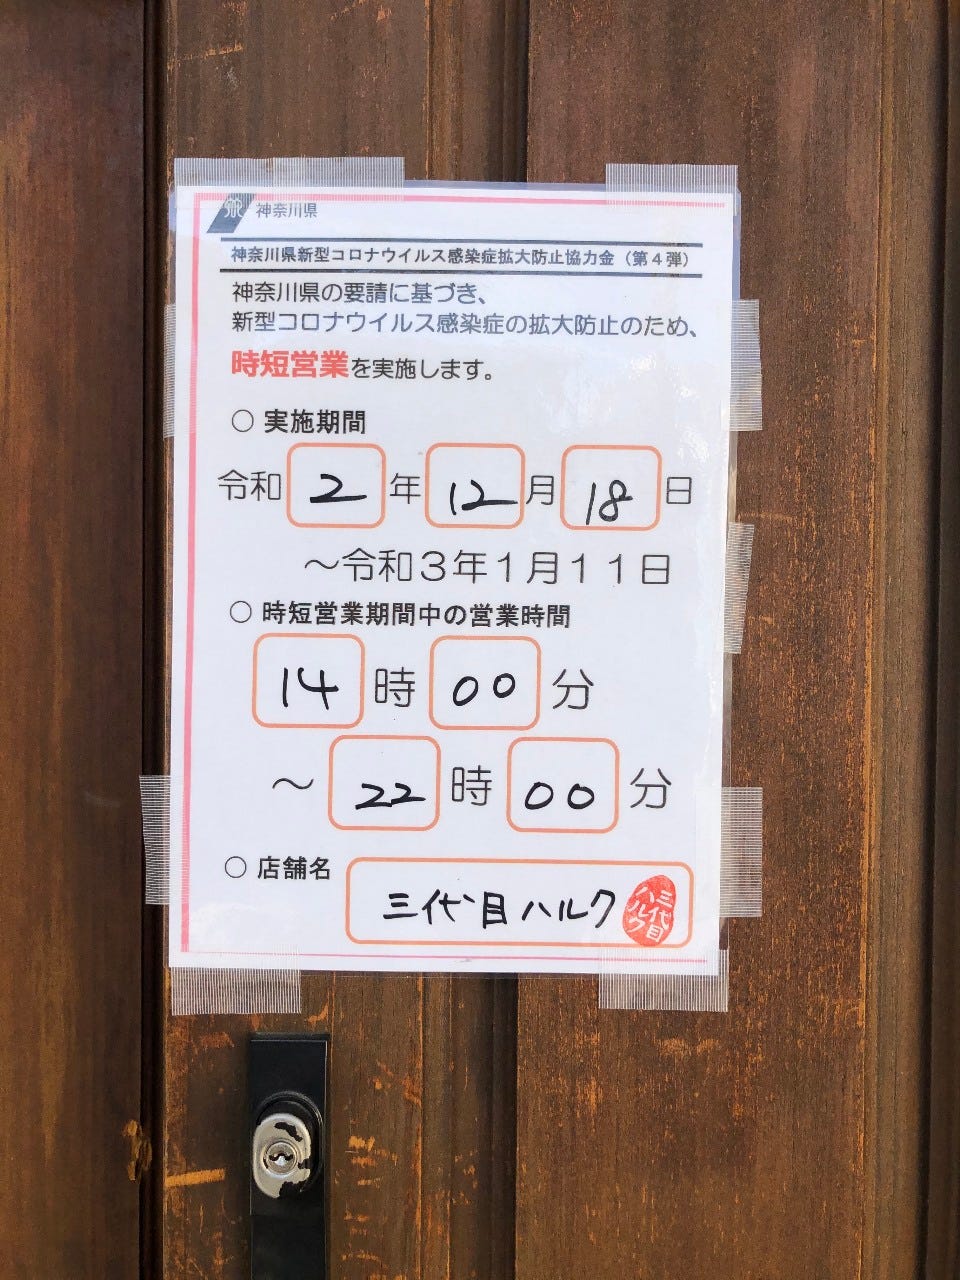 神奈川県
神奈川県新型コロナウイルス感染症拡大防止協力金（第４弾）
神奈川県の要請に基づき、
新型コロナウイルス感染症の拡大防止のため、
時短営業を実施します。
○ 実施期間
令和 2 年 12 月 18 日
～令和３年１月１１日
○ 時短営業期間中の営業時間
14 時 00 分
～ 22 時 00 分
○ 店舗名 三代目ハルク
三代目ハルク